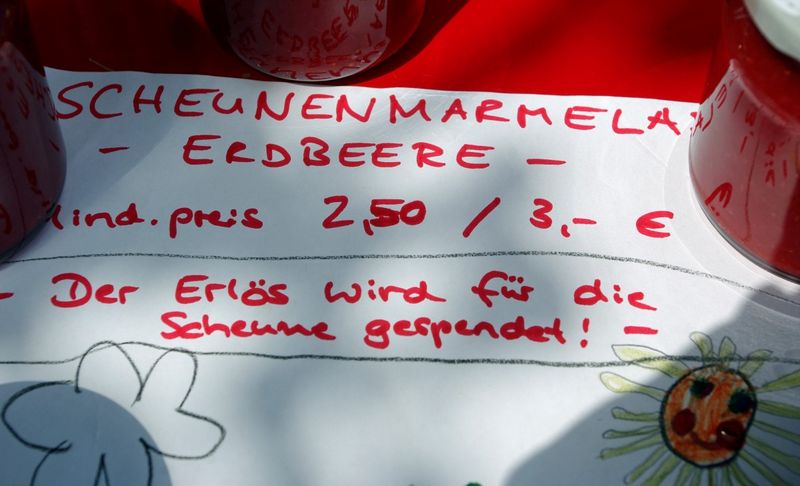 SCHEUNENMARMELA
- ERDBEERE -
ind.preis 2,50 / 3,- €
- Der Erlös wird für die
Scheune gespendet! -